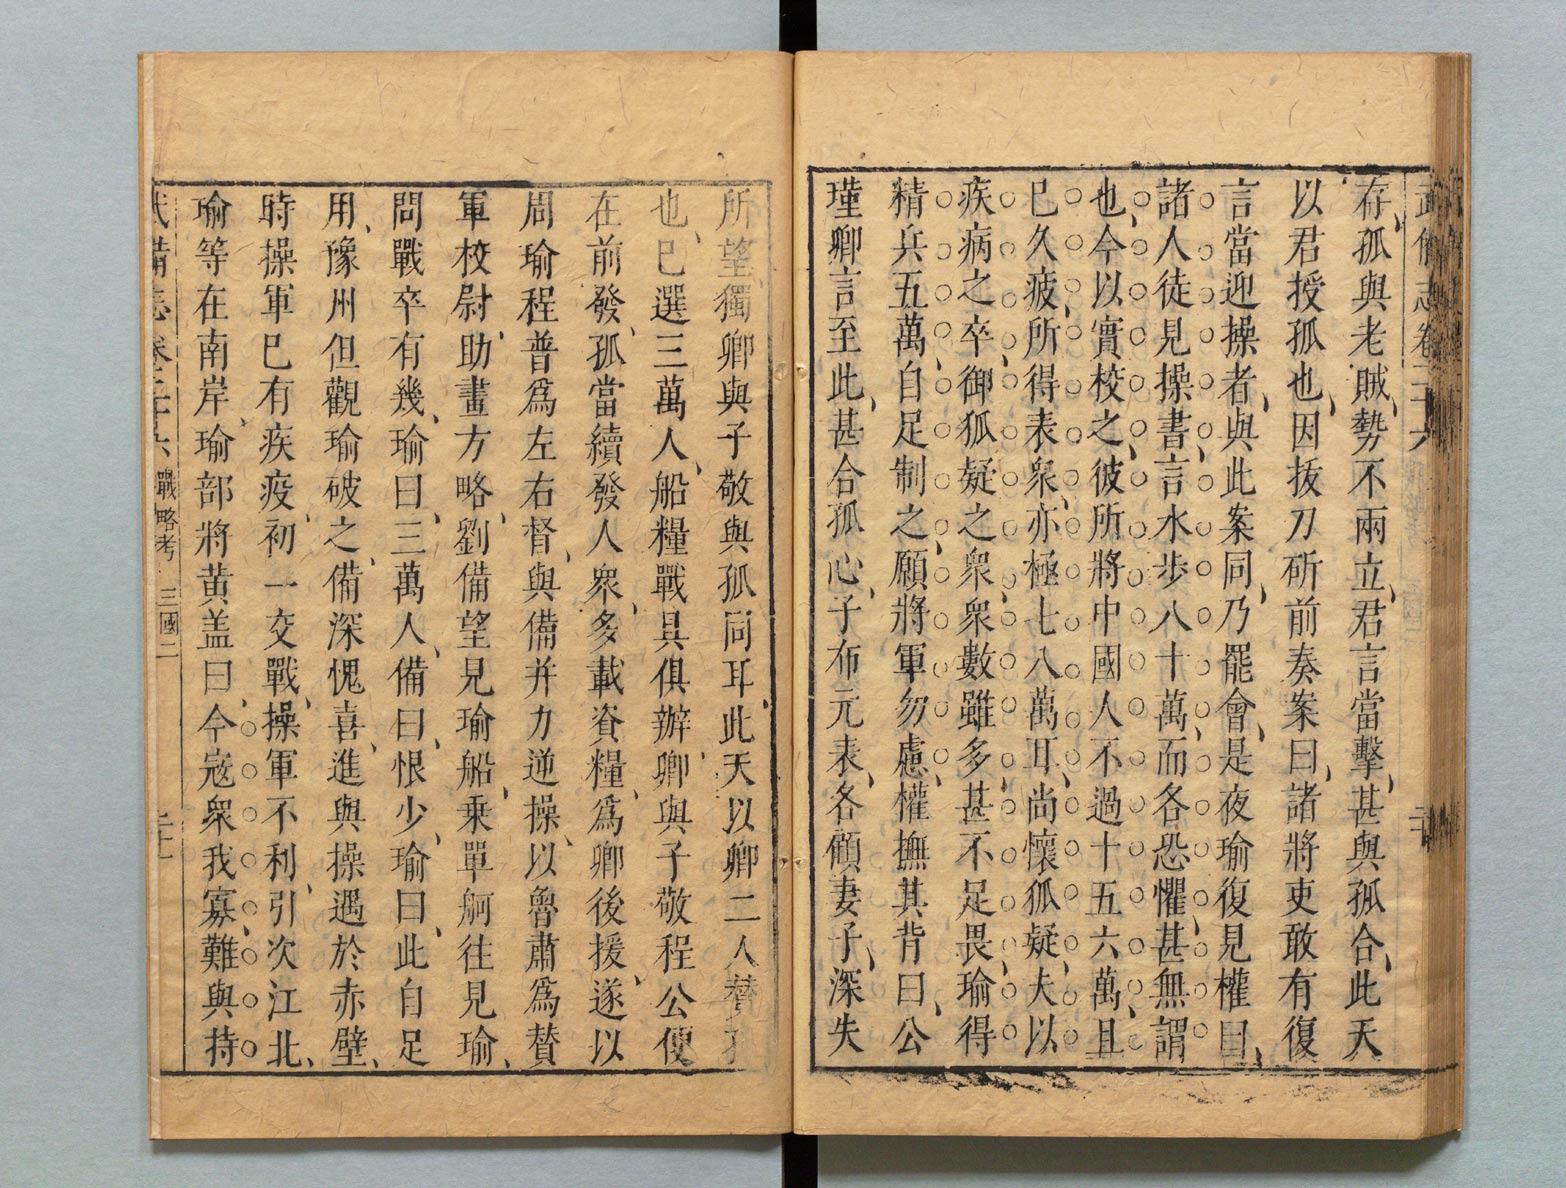 武備志卷二十六
存、孤與老賊、勢不兩立、君言當擊、甚與孤合、此天
以君授孤也、因拔刀斫前奏案曰、諸將吏敢有復
言當迎操者、與此案同、乃罷會、是夜瑜復見權曰、
諸人徒見操書、言水步八十萬、而各恐懼、甚無謂
也、今以實校之、彼所將中國人不過十五六萬、且
已久疲、所得表衆、亦極七八萬耳、尚懷狐疑、夫以
疾病之卒、御狐疑之衆、衆數雖多、甚不足畏、瑜得
精兵五萬、自足制之、願將軍勿慮、權撫其背曰、公
瑾卿言至此、甚合孤心、子布元表、各顧妻子、深失
所望、獨卿與子敬與孤同耳、此天以卿二人贊孤
也、已選三萬人、船糧戰具俱辦、卿與子敬程公便
在前發、孤當續發人衆、多載資糧、爲卿後援、遂以
周瑜程普爲左右督、與備并力逆操、以魯肅爲贊
軍校尉、助畫方略、劉備望見瑜船、乗單舸往見瑜、
問戰卒有幾、瑜曰、三萬人、備曰、恨少、瑜曰、此自足
用、豫州但觀瑜破之、備深愧喜、進與操遇於赤壁、
時操軍已有疾疫、初一交戰、操軍不利、引次江北、
瑜等在南岸、瑜部將黄盖曰、今寇衆我寡、難與持
武備志卷二十六 戰略考 三國二 二十一